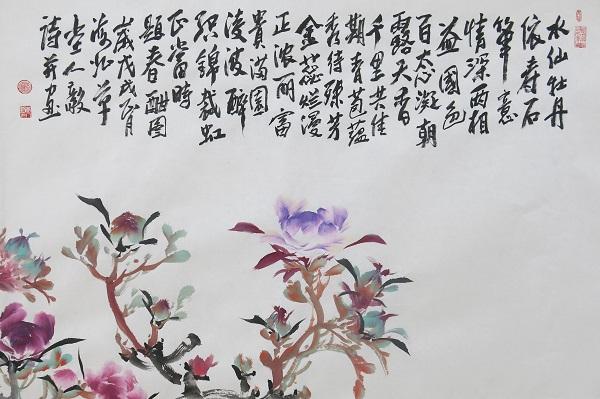 水仙牡丹
依寿石
笔意
情深两相
益國色
百态凝朝
露天香
千里共佳
期青苞蕴
秀待殊芳
金蕊烂漫
正浓丽富
貴满園
凌波醉
织錦裁虹
正當时
题春酣图
岁戊戌月
海草
堂人敬
诗并画